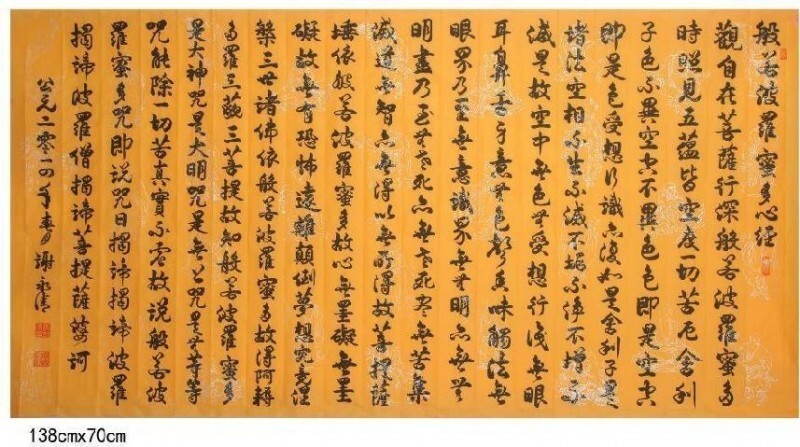 般若波羅蜜多心經
觀自在菩薩行深般若波羅蜜多
時照見五蘊皆空度一切苦厄舍利
子色不異空空不異色色即是空空
即是色受想行識亦復如是舍利子是
諸法空相不生不滅不垢不淨不增不
減是故空中無色無受想行識無眼
耳鼻舌身意無色聲香味觸法無
眼界乃至無意識界無無明亦無無
明盡乃至無老死亦無老死盡無苦集
滅道無智亦無得以無所得故菩提薩
埵依般若波羅蜜多故心無罣礙無罣
礙故無有恐怖遠離顛倒夢想究竟涅
槃三世諸佛依般若波羅蜜多故得阿耨
多羅三藐三菩提故知般若波羅蜜多
是大神咒是大明咒是無上咒是無等等
咒能除一切苦真實不虛故說般若波
羅蜜多咒即說咒曰揭諦揭諦波羅
揭諦波羅僧揭諦菩提薩婆訶
公元二零一四年春月謝永清
138cmx70cm